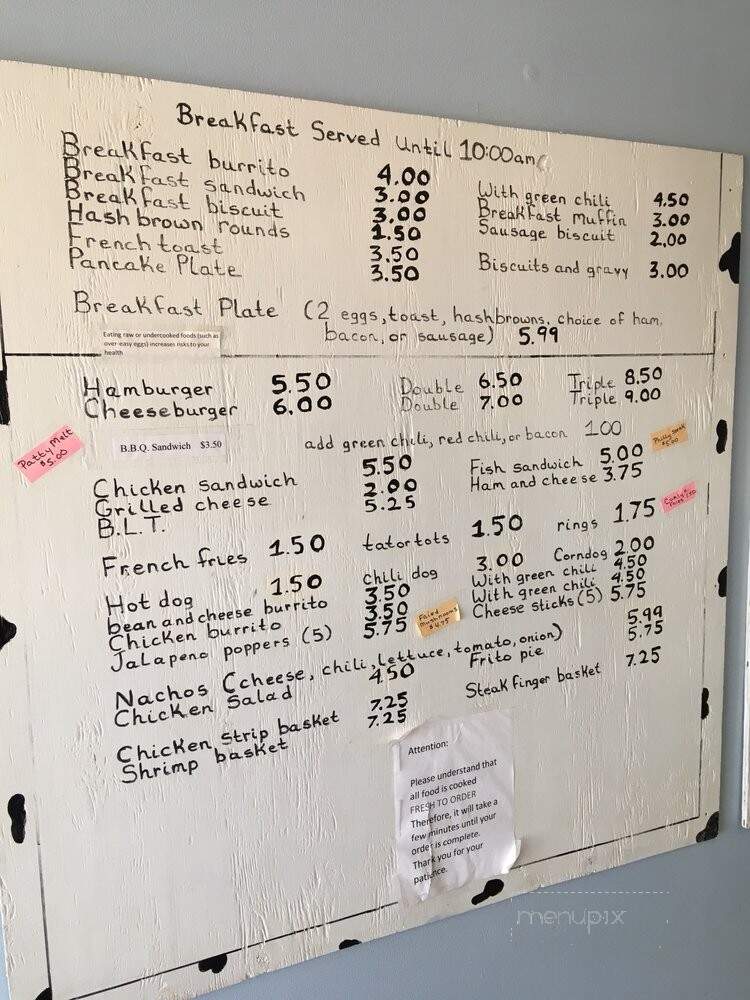 Breakfast Served Until 10:00am
Breakfast burrito 4.00 With green chili 4.50
Breakfast sandwich 3.00 Breakfast muffin 3.00
Breakfast biscuit 3.00 Sausage biscuit 2.00
Hash brown rounds 1.50
French toast 3.50 Biscuits and gravy 3.00
Pancake Plate 3.50
Breakfast Plate (2 eggs, toast, hashbrowns, choice of ham,
bacon, or sausage) 5.99
Eating raw or undercooked foods (such as
over-easy eggs) increases risks to your
health
Hamburger 5.50 Double 6.50 Triple 8.50
Cheeseburger 6.00 Double 7.00 Triple 9.00
Patty Melt
$5.00
B.B.Q. Sandwich $3.50
add green chili, red chili, or bacon 1.00
Philly steak
$5.00
Chicken sandwich 5.50 Fish sandwich 5.00
Grilled cheese 2.00 Ham and cheese 3.75
B.L.T. 5.25
French fries 1.50 tator tots 1.50 rings 1.75
Curly
Fries
Hot dog 1.50 chili dog 3.00 Corndog 2.00
bean and cheese burrito 3.50 With green chili 4.50
Chicken burrito 3.50 With green chili 4.50
Jalapeno poppers (5) 5.75 Cheese sticks (5) 5.75
Fried
mushrooms
$4.75
Nachos (cheese, chili, lettuce, tomato, onion) 5.99
Chicken Salad 4.50 Frito pie 5.75
Chicken strip basket 7.25 Steak finger basket 7.25
Shrimp basket 7.25
Attention:
Please understand that
all food is cooked
FRESH TO ORDER
Therefore, it will take a
few minutes until your
order is complete.
Thank you for your
patience.
menupix